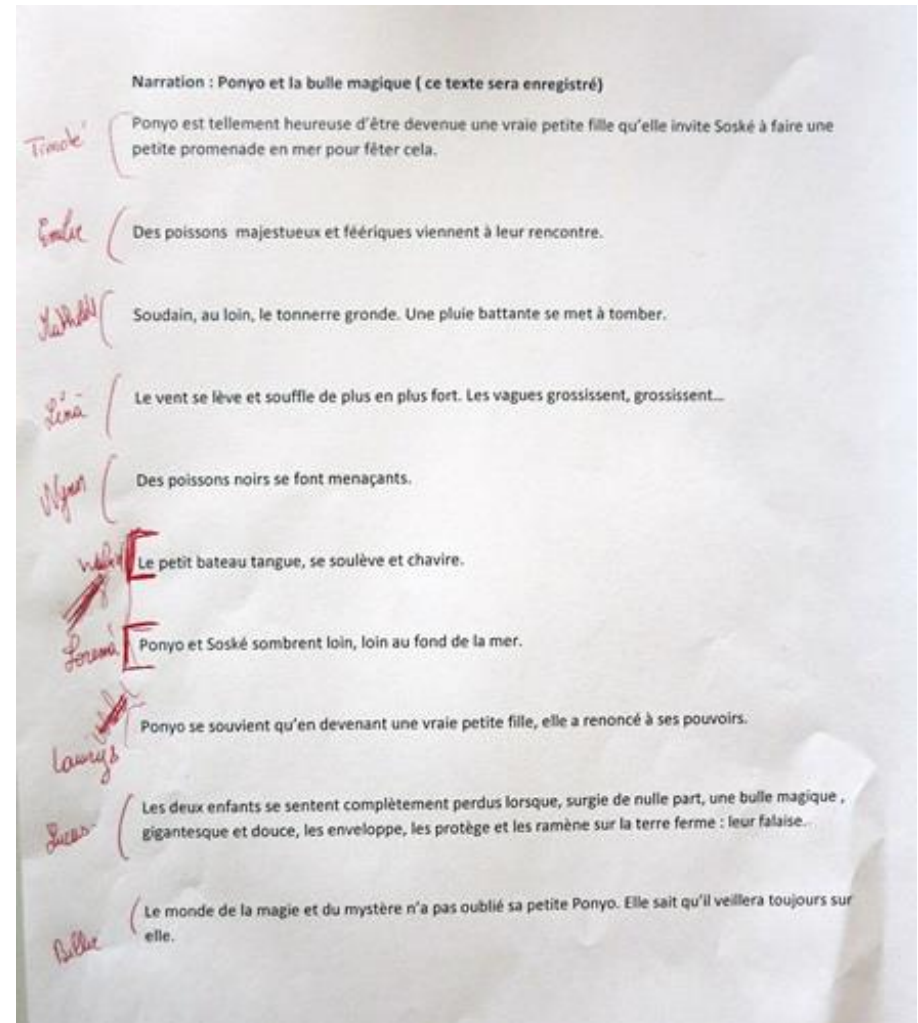 Narration : Ponyo et la bulle magique ( ce texte sera enregistré)
Timoté
Ponyo est tellement heureuse d'être devenue une vraie petite fille qu'elle invite Soské à faire une
petite promenade en mer pour fêter cela.
Emilie
Des poissons majestueux et féériques viennent à leur rencontre.
Soudain, au loin, le tonnerre gronde. Une pluie battante se met à tomber.
Léna
Le vent se lève et souffle de plus en plus fort. Les vagues grossissent, grossissent...
Des poissons noirs se font menaçants.
Le petit bateau tangue, se soulève et chavire.
Ponyo et Soské sombrent loin, loin au fond de la mer.
Ponyo se souvient qu'en devenant une vraie petite fille, elle a renoncé à ses pouvoirs.
Laurys
Lucas
Les deux enfants se sentent complètement perdus lorsque, surgie de nulle part, une bulle magique ,
gigantesque et douce, les enveloppe, les protège et les ramène sur la terre ferme : leur falaise.
Le monde de la magie et du mystère n'a pas oublié sa petite Ponyo. Elle sait qu'il veillera toujours sur
elle.
Billie